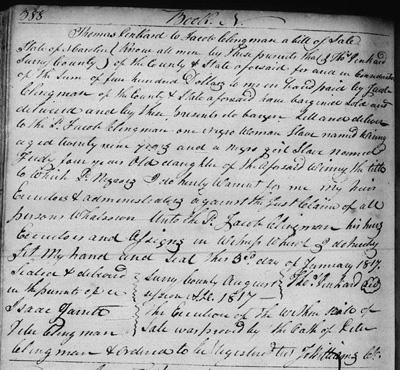 388 Book N.
Thomas Penhard to Jacob Clingman a bill of Sale
State of No Carolina } Know all men by these presents that I Thos Penhard
Surry County } of the County & State aforesaid for and in Consideration
of the Sum of five hundred Dollars to me in hand paid by Jacob
Clingman of the County & State aforesaid have bargained Sold and
delivered and by these presents do bargain Sell and deliver
to the Sd. Jacob Clingman one negro Woman Slave named Winny
aged twenty nine years and a negro girl Slave named
four years Old daughter of the aforesaid Winny the title
to which Sd. Negroes I do hereby Warrant for me My heirs
Executors & administrators against the Just Claims of all
persons Whatsoever Unto the Sd. Jacob Clingman his heirs
Executors and Assigns in Witness Whereof I do hereby
Set My hand and Seal this 3rd day of January 1817.
Sealed & delivered } Surry County August } Thos Penhard
in the presents of us } Session A.D. 1817
Isaac Jarratt } The Execution of the Within Bill of
Peter Clingman } Sale was proved by the Oath of Peter
Clingman & Ordered to be Registered Test Jo Williams Clk.